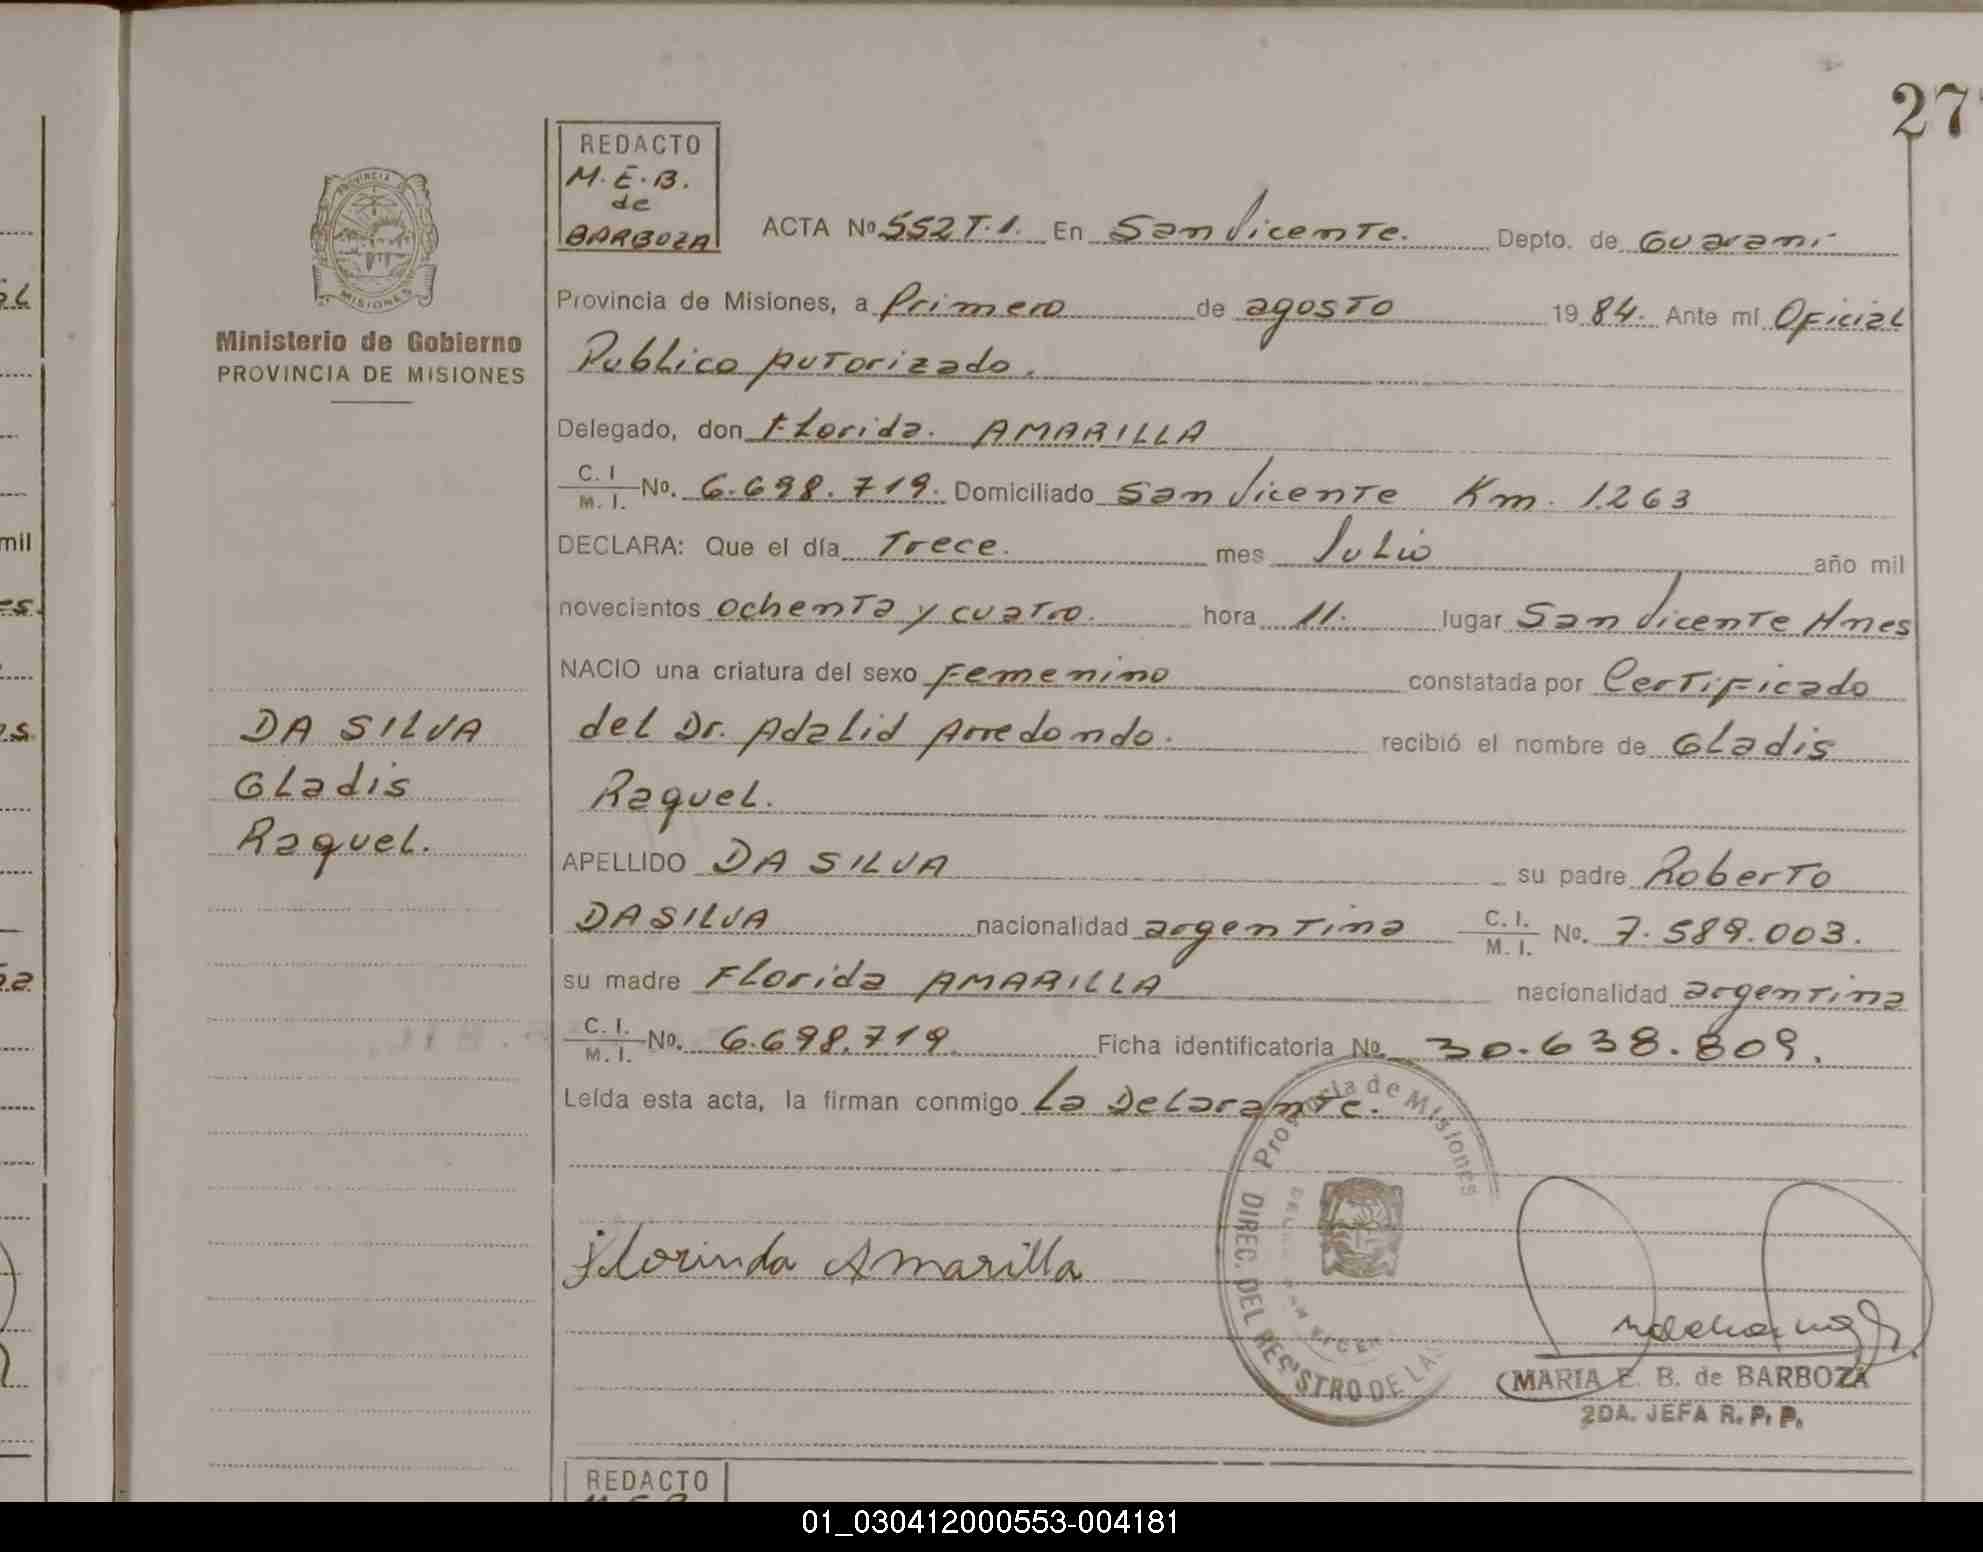 27
REDACTO
M. E. B.
de
BARBOZA
PROVINCIA DE
MISIONES
Ministerio de Gobierno
PROVINCIA DE MISIONES
ACTA No 552 T.1. En San Vicente. Depto. de Guarani
Provincia de Misiones, a Primero de agosto 19 84. Ante mí Oficial
Publico Autorizado.
Delegado, don Florida. AMARILLA
C. I. / M. I. No. 6.698.719. Domiciliado San Vicente Km. 1.263
DECLARA: Que el día Trece. mes Julio año mil
novecientos ochenta y cuatro. hora 11. lugar San Vicente Mnes
NACIO una criatura del sexo Femenino constatada por Certificado
del Dr. Adalid Arredondo. recibió el nombre de Gladis
Raquel.
APELLIDO DA SILVA su padre Roberto
DA SILVA nacionalidad argentina C. I. / M. I. No. 7.589.003.
su madre Florida AMARILLA nacionalidad argentina
C. I. / M. I. No. 6.698.719 Ficha identificatoria No. 30.638.809.
Leída esta acta, la firman conmigo La Delarante.
DA SILVA
Gladis
Raquel.
Florinda Amarilla
Provincia de Misiones
DIREC. DEL REGISTRO DE LAS
MARIA E. B. de BARBOZA
2DA. JEFA R. P. P.
REDACTO
mil
01_030412000553-004181